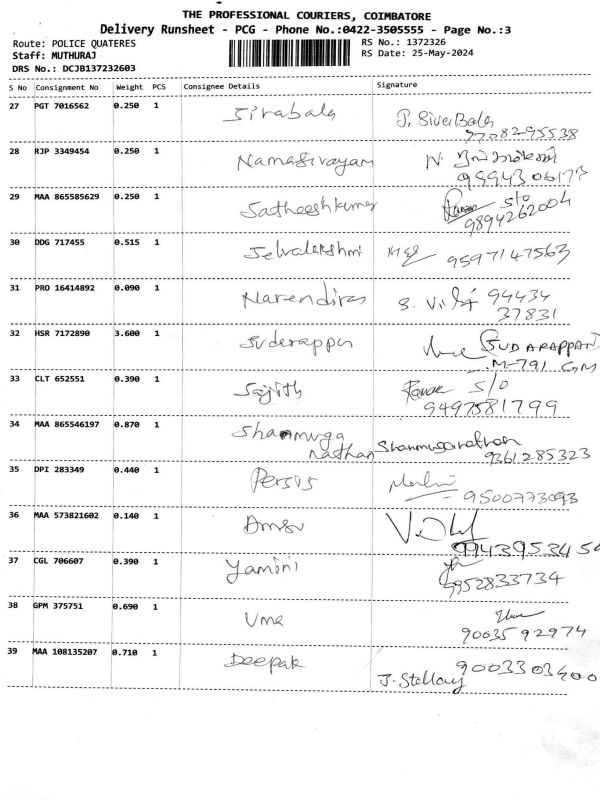 THE PROFESSIONAL COURIERS, COIMBATORE
Delivery Runsheet - PCG - Phone No.:0422-3505555 - Page No.:3
Route: POLICE QUATERES
RS No.: 1372326
Staff: MUTHURAJ
RS Date: 25-May-2024
DRS No.: DCJB137232603
S No Consignment No Weight PCS Consignee Details Signature
27 PGT 7016562 0.250 1 Sirabala P. SiverBala
9708295538
28 RJP 3349454 0.250 1 Namasivayam
9994306173
29 MAA 865585629 0.250 1 Satheeshkumar s/o
9894262004
30 DDG 717455 0.515 1 Selvalakshmi 9597147563
31 PRO 16414892 0.090 1 Narendiran 94434
37831
32 HSR 7172890 3.600 1 Suderappan SUDARAPPAN
M-791
33 CLT 652551 0.390 1 Sajith s/o
9497581799
34 MAA 865546197 0.870 1 Shanmuga
Nathan Shanmuganathan
9361285323
35 DPI 283349 0.440 1 Persis
9500773093
36 MAA 573821602 0.140 1
9943953454
37 CGL 706607 0.390 1 Yamini
9952833734
38 GPM 375751 0.690 1 Uma
9003592974
39 MAA 108135207 0.710 1 Deepak 9003303400
J. Stellary